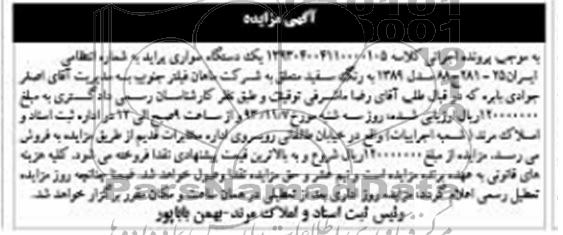 آگهی مزایده
به موجب پرونده اجرائی کلاسه ۱۳۹۳۰۴۰۰۴۱۱۰۰۰۰۱۰۵ یک دستگاه سواری پراید به شماره انتظامی
ایران۲۵ - ۲۸۱ - ۸۸ مدل ۱۳۸۹ به رنگ سفید متعلق به شرکت ماهان فیلتر جنوب به مدیریت آقای اصغر
جوادی یابره که در قبال طلب آقای رضا ماشرفی توقیف و طبق نظر کارشناسان رسمی دادگستری به مبلغ
۱۲۰۰۰۰۰۰۰ ریال ارزیابی شده، روز سه شنبه مورخ ۹۳/۱۱/۷ و از ساعت ۹ صبح الی ۱۲ در اداره ثبت اسناد و
املاک مرند (شعبه اجراییات) واقع در خیابان طالقانی روبروی اداره مخابرات قدیم از طریق مزایده به فروش
می رسد. مزایده از مبلغ ۱۲۰۰۰۰۰۰۰ ریال شروع و به بالاترین قیمت پیشنهادی نقدا فروخته می شود. کلیه هزینه
های قانونی به عهده برنده مزایده است و نیم عشر و حق مزایده نقدا وصول خواهد شد. ضمنا چنانچه روز مزایده
تعطیل رسمی اعلام گردد، مزایده روز اداری بعد از تعطیلی در همان ساعت و مکان مقرر برگزار خواهد شد.
رئیس ثبت اسناد و املاک مرند - بهمن باباپور